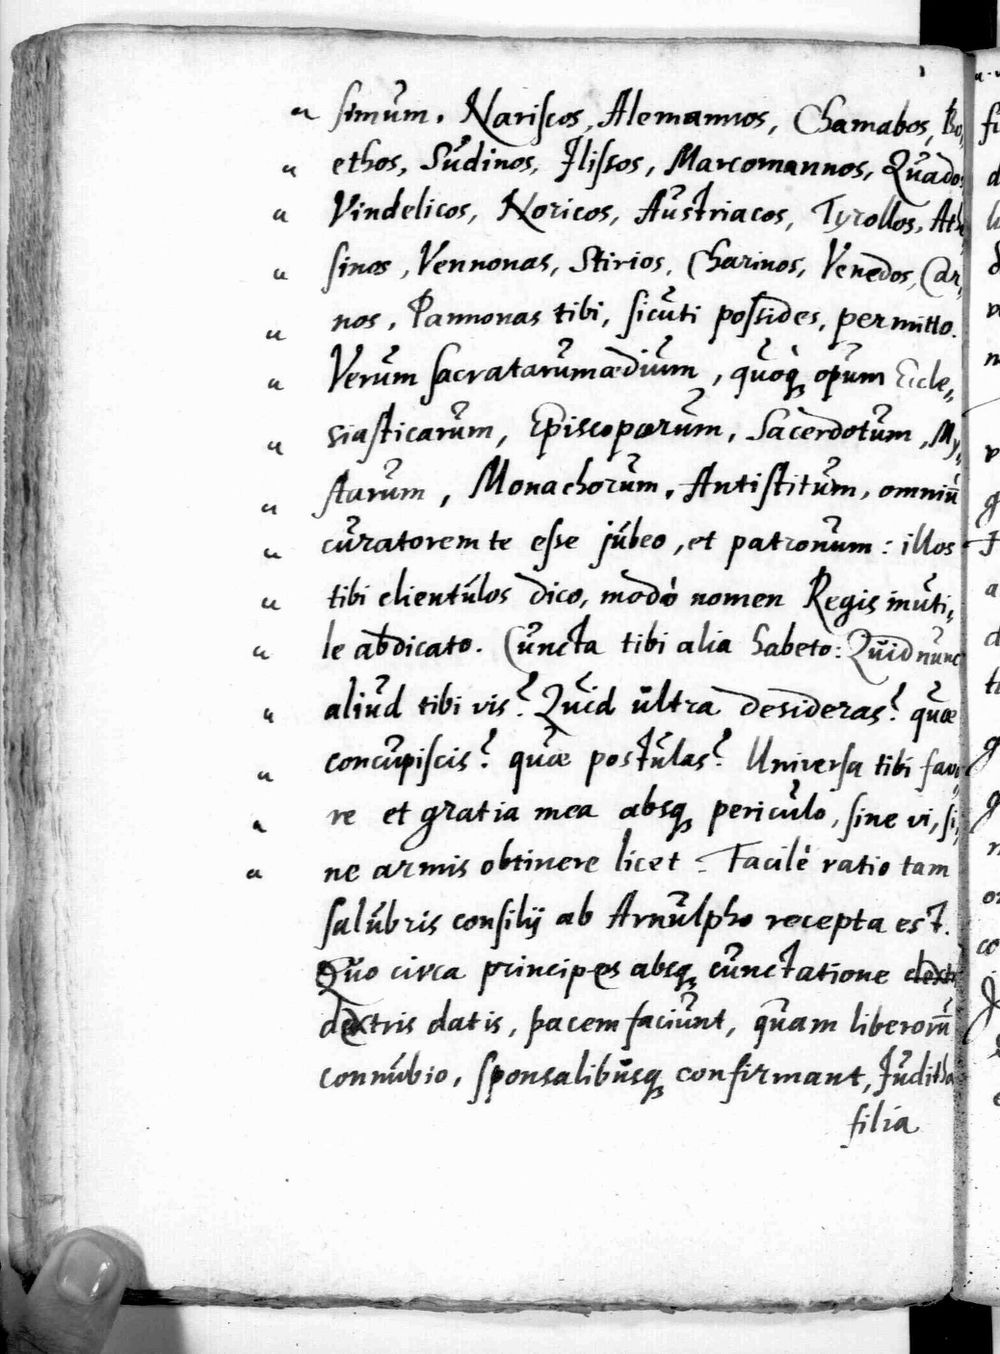 „ simum. Nariscos, Alemannos, Chamabos, Bo,
„ ethos, Sudinos, Ilissos, Marcomannos, Quados
„ Vindelicos, Noricos, Austriacos, Tyrollos, Athe,
„ sinos, Vennonas, Stirios, Charinos, Venedos, Car,
„ nos, Pannonas tibi, sicuti possides, permitto.
„ Verum sacratarum ædium, quoq₃ opum Eccle,
„ siasticarum, Episcoporum, Sacerdotum, My,
„ starum, Monachorum, Antistitum, omniū
„ curatorem te esse jubeo, et patronum: illos
„ tibi clientulos dico, modò nomen Regis inuti,
„ le abdicato. Cuncta tibi alia habeto: Quid nunc
„ aliud tibi vis? Quid ultra desideras? quæ
„ concupiscis? quæ postulas? Universa tibi favo,
„ re et gratia mea absq₃ periculo, sine vi, si,
„ ne armis obtinere licet. Facilè ratio tam
salubris consilij ab Arnulpho recepta est.
Quo circa principes absq₃ cunctatione dextr
dextris datis, pacem faciunt, quam liberorū
connubio, sponsalibusq₃ confirmant, Juditha
filia